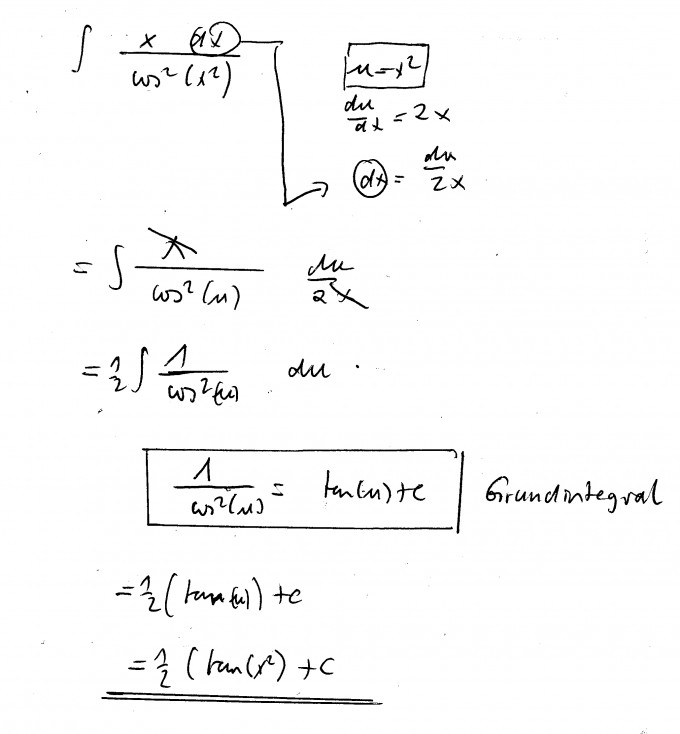 ∫ x dx / cos²(x²)
u = x²
du/dx = 2x
dx = du/2x
= ∫ x / cos²(u) du/2x
= 1/2 ∫ 1 / cos²(u) du .
1 / cos²(u) = tan(u)+c Grundintegral
= 1/2 (tan(u)) + c
= 1/2 (tan(x²) + C